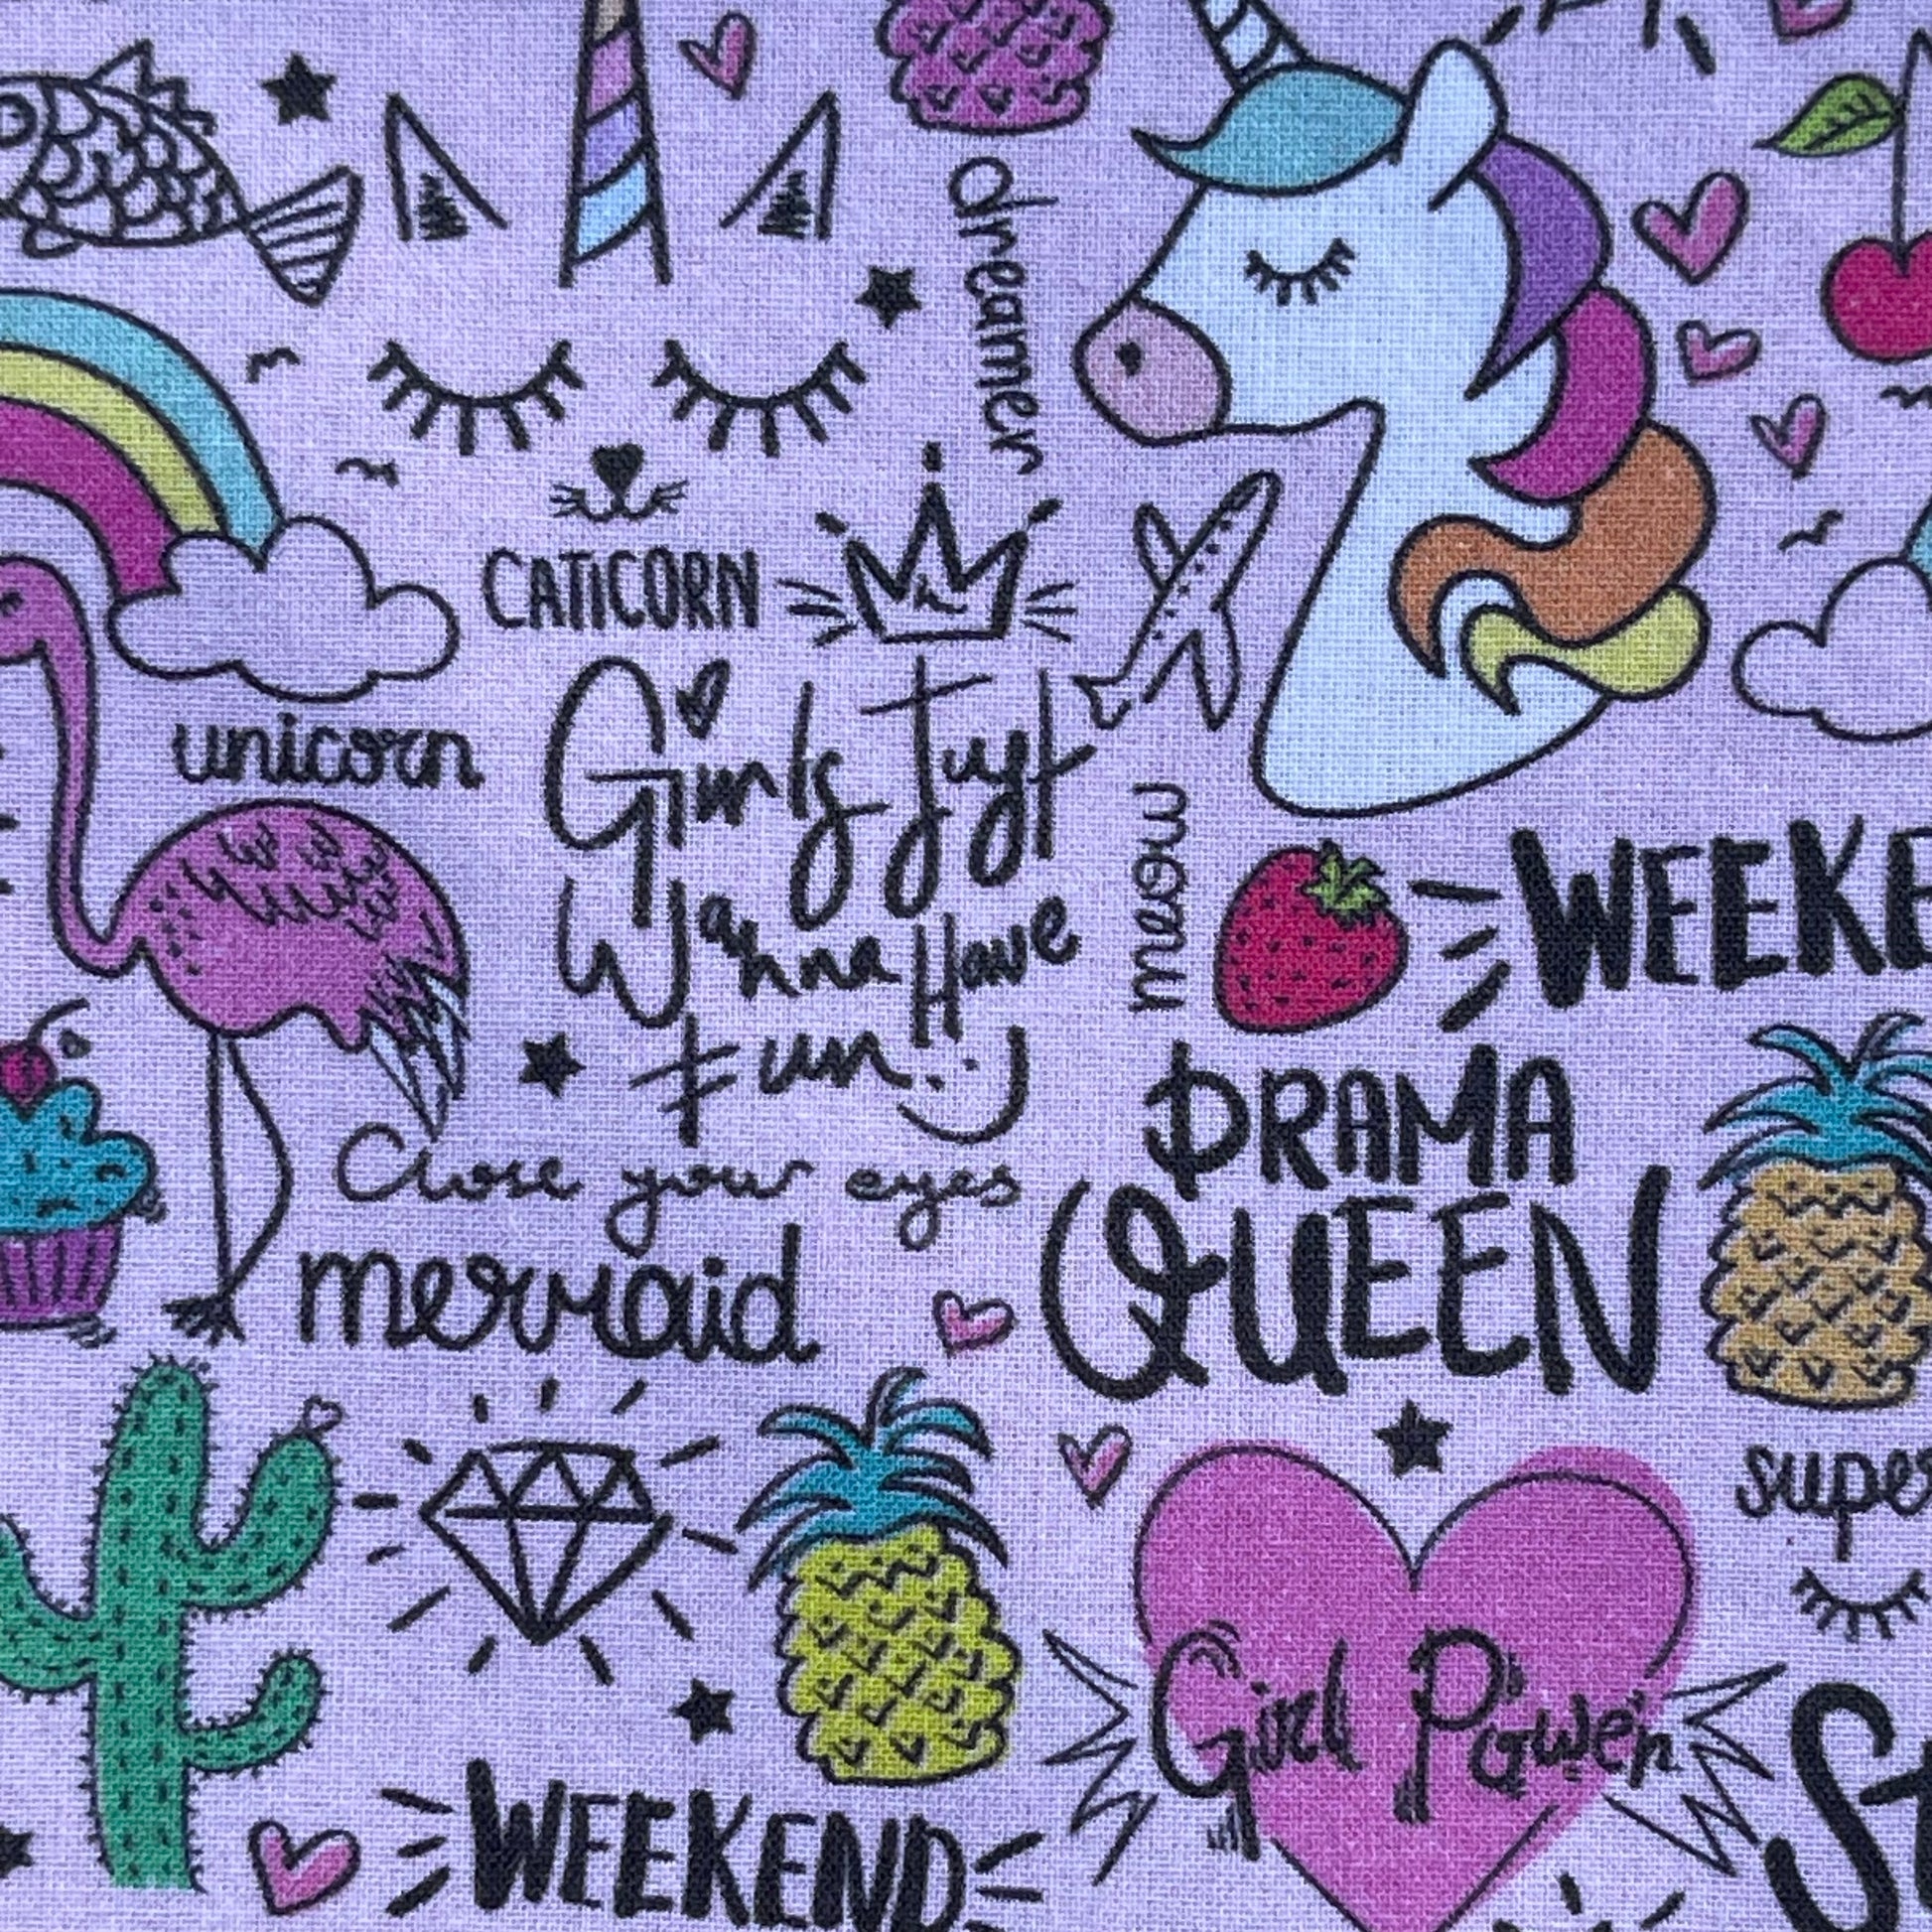 dreamer
CATICORN
unicorn
Girls Just
Wanna Have
Fun
meow
WEEKE
DRAMA
QUEEN
Close your eyes
mermaid
super
Girl Power
WEEKEND